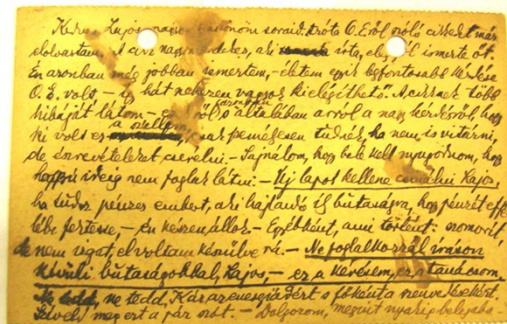 Kedves Lajos, nagyon köszönöm soraid. írta O. E.ről szóló cikkét már
elolvastam. A cikk nagyon érdekes, aki írta, elég jól ismerte őt.
Én azonban még jobban ismertem, – életem egyik legfontosabb kérdése
O. E. volt – így hát nehezen vagyok kielégíthető. A cikknek több
hibáját látom – s általában arról a nagy kérdésről, hogy
ki volt ez a szellem, csak személyesen tudnék, ha nem is vitázni,
de eszrevételeket cserélni. – Sajnálom, hogy bele kell nyugodnom, hogy
ideig nem foglak látni. – Uj lapot kellene csinálni Lajos,
ha tudsz pénzes embert, aki hajlandó ily butaságra, hogy pénzét
fektesse, – én készen állok. – Egyébként, ami történt: szomorít
de nem izgat, el voltam készülve rá. – Ne foglalkozzál íráson
kívüli butaságokkal, Lajos, – ez a kérésem, ez a tanácsom.
ne tedd, Kár az energiádért s főként a szenvedésekért.
ezt a pár sort. – Dolgozom, megint nyakig belejöttem